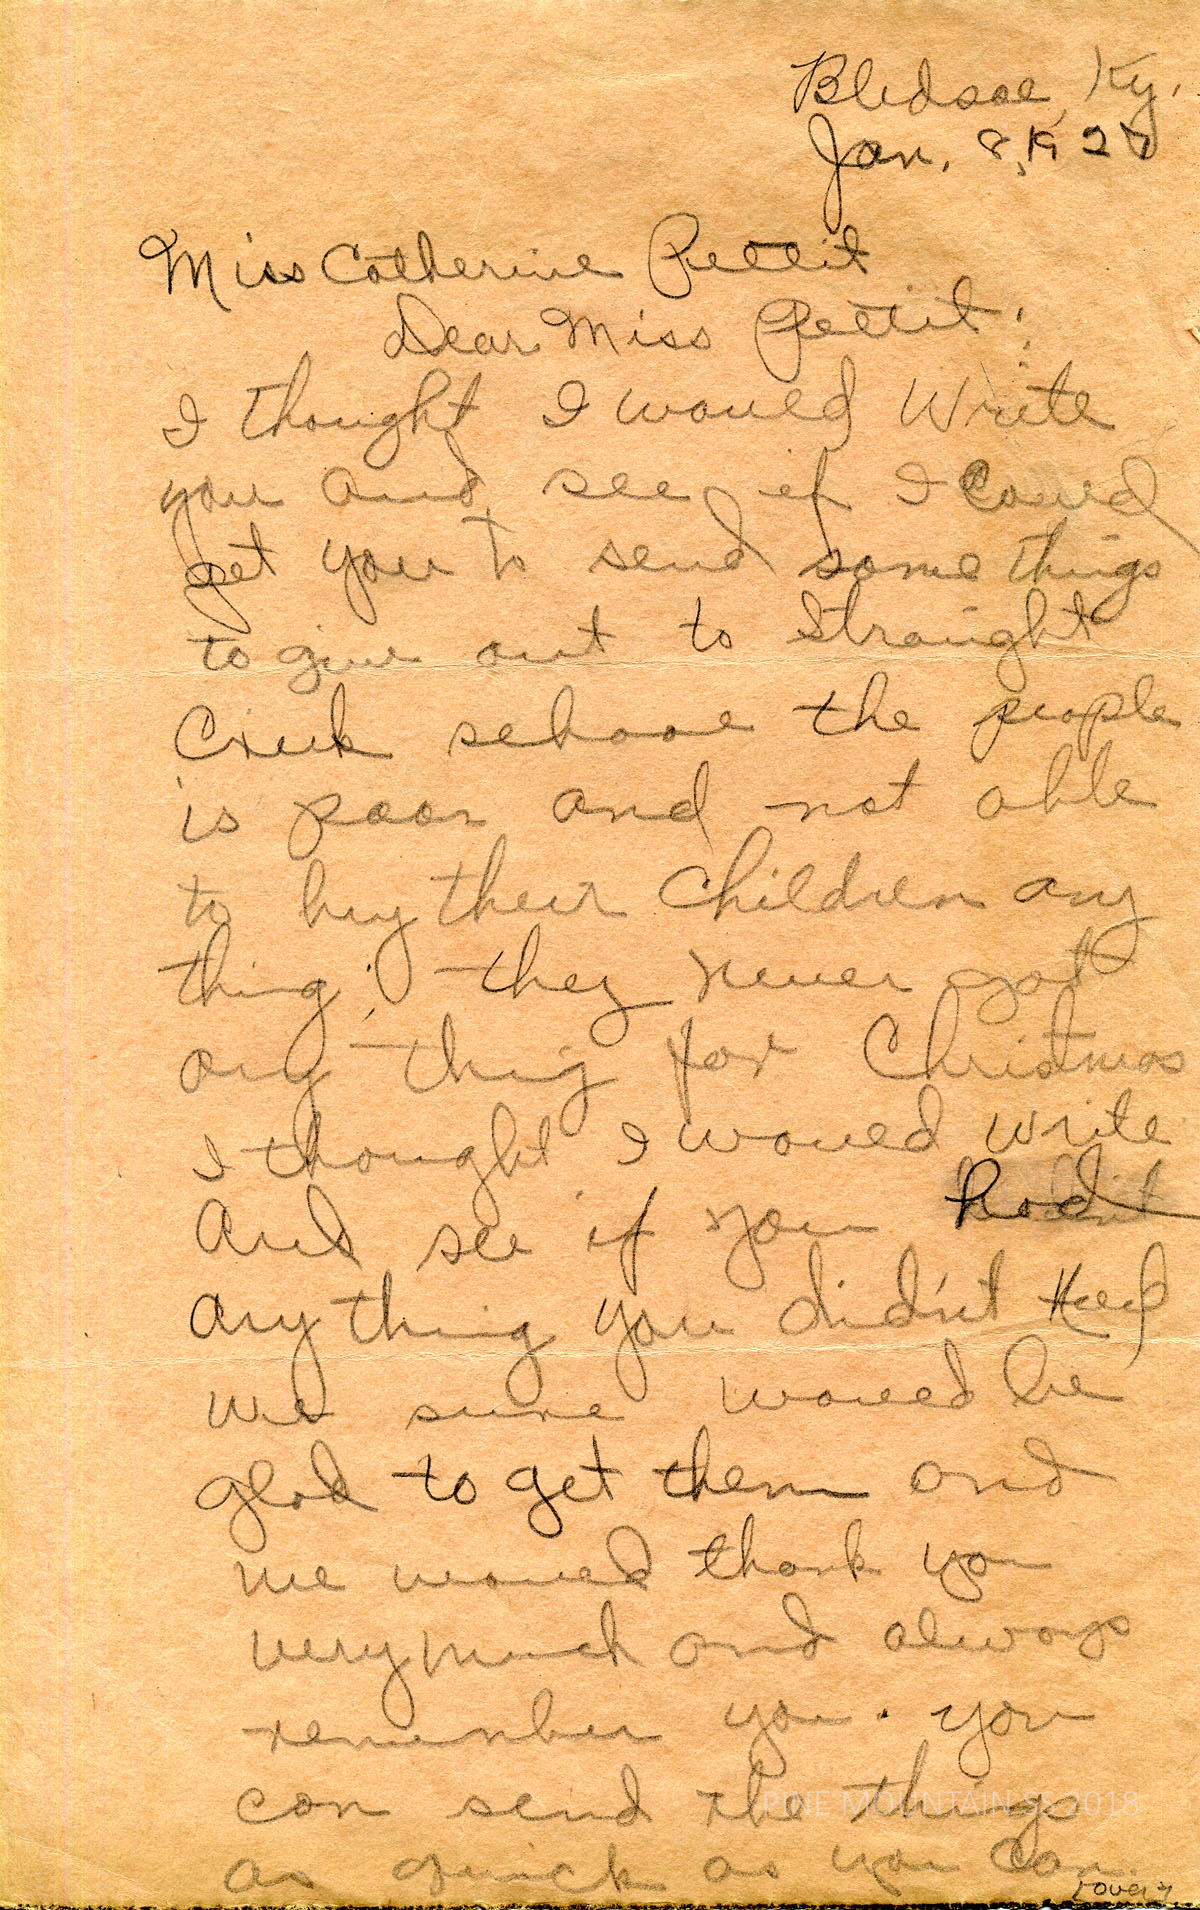 Bledsoe, Ky.
Jan. 8, 1927
Miss Catherine Pettit
Dear Miss Pettit:
I thought I would Write
you and see if I Could
get you to send some things
to give out to Straight
Creek schooe the people
is poor and not able
to buy their Children any
thing; they never got
any thing for Christmas
I thought I would write
And see if you had
Any thing you didn't Keep
we sure would be
glad to get them and
we would thank you
very much and always
remember you. you
can send the things
as quick as you Can.
(over)
PINE MOUNTAIN SS 2018